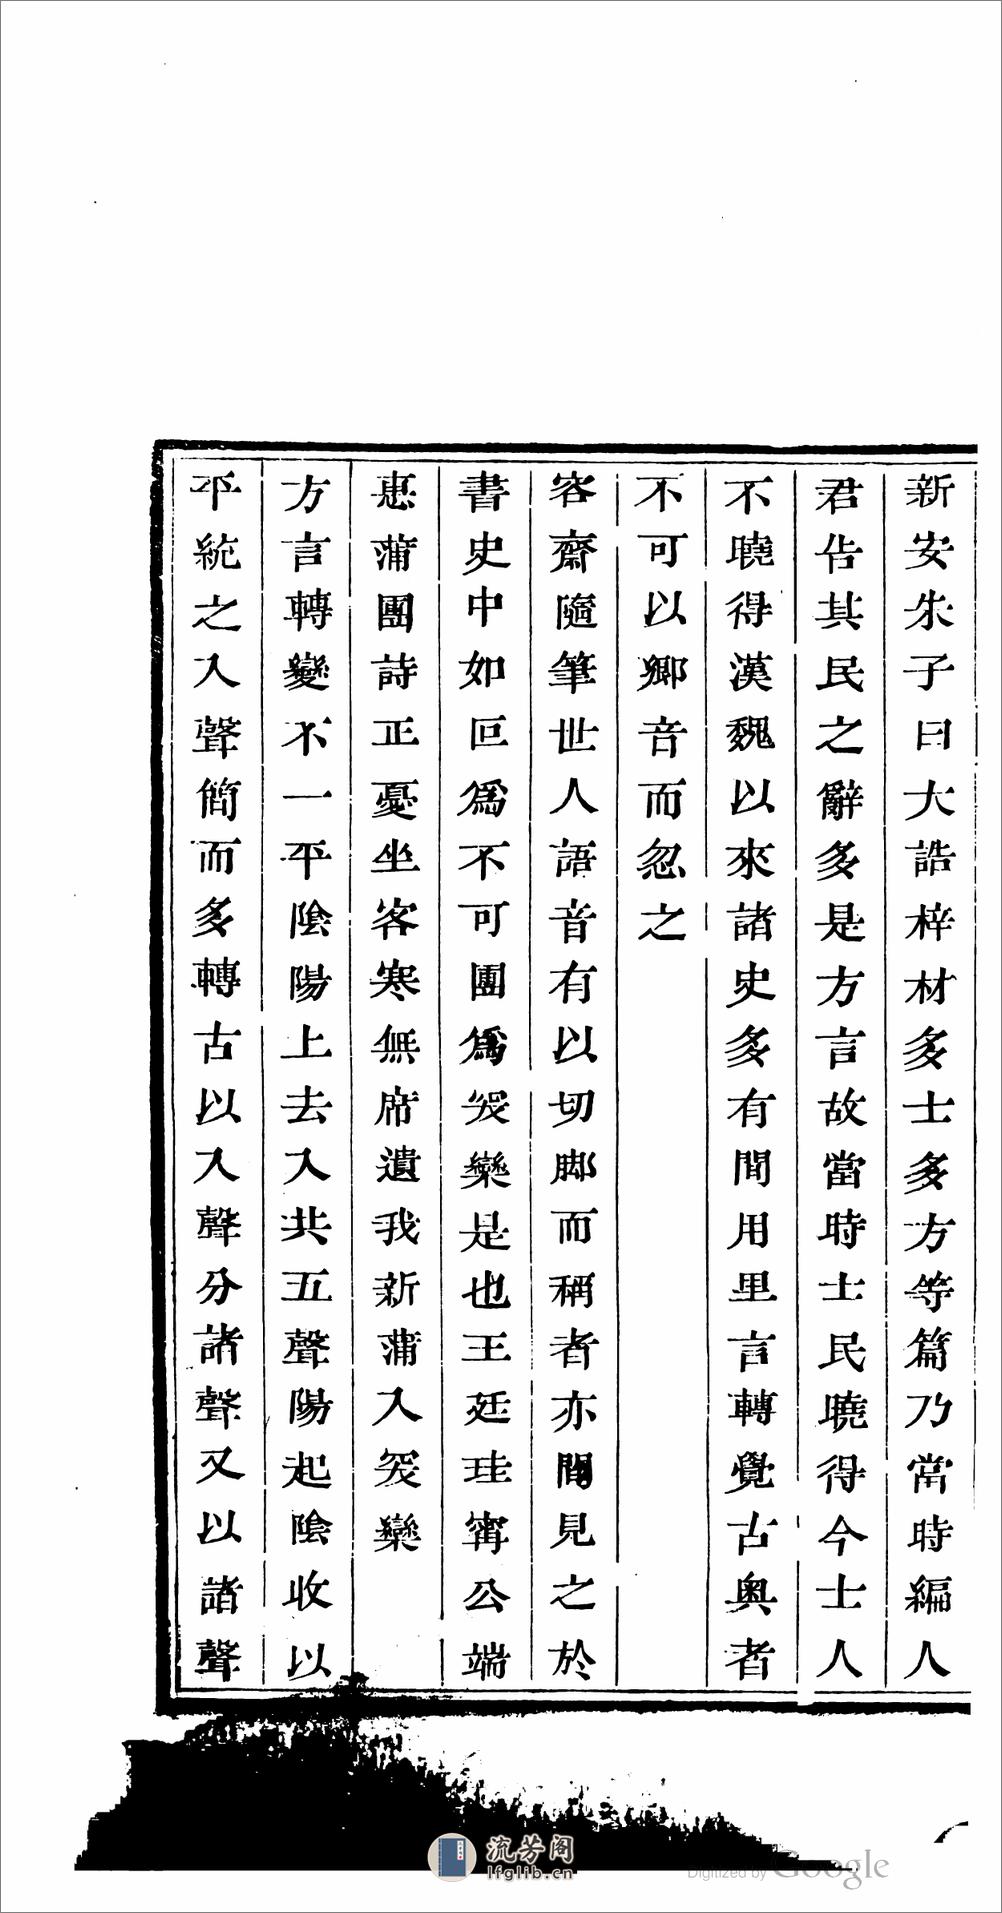 新安朱子曰大誥梓材多士多方等篇乃當時編人
君告其民之辭多是方言故當時士民曉得今士人
不曉得漢魏以來諸史多有間用里言轉覺古奧者
不可以鄉音而忽之
容齋隨筆世人語音有以切脚而稱者亦間見之於
書史中如叵爲不可團爲突欒是也王廷珪寄公端
惠蒲團詩正憂坐客寒無席遺我新蒲入突欒
方言轉變不一平陰陽上去入共五聲陽起陰收以
平統之入聲簡而多轉古以入聲分諸聲又以諸聲
流芳阁
lfglib.cn
Digitized by Google